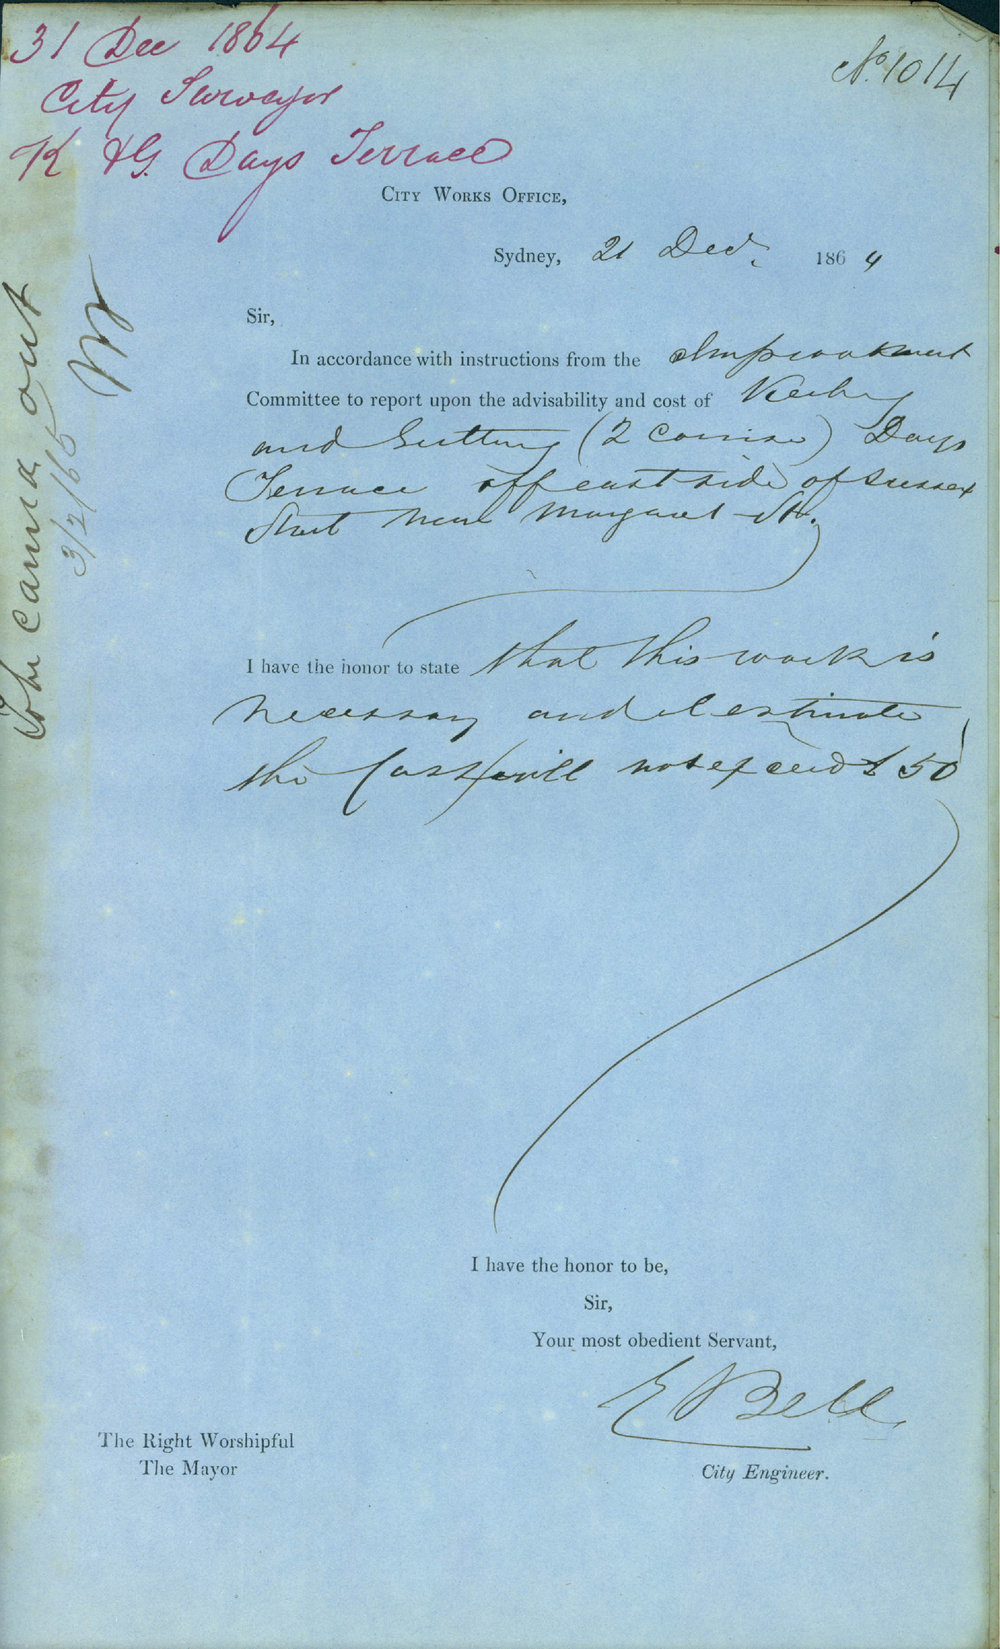 31 Dec 1864
City Surveyor
K & G. Days Terrace
No. 1014
City Works Office,
Sydney, 21 Decr. 1864
Sir,
In accordance with instructions from the Improvement
Committee to report upon the advisability and cost of Kerbing
and Guttering (2 course) Days
Terrace off east side of Sussex
Street near Margaret St.
I have the honor to state that this work is
necessary and I estimate
the Cost will not exceed £50
I have the honor to be,
Sir,
Your most obedient Servant,
E Bell
City Engineer.
The Right Worshipful
The Mayor
To be carried out
3/2/65